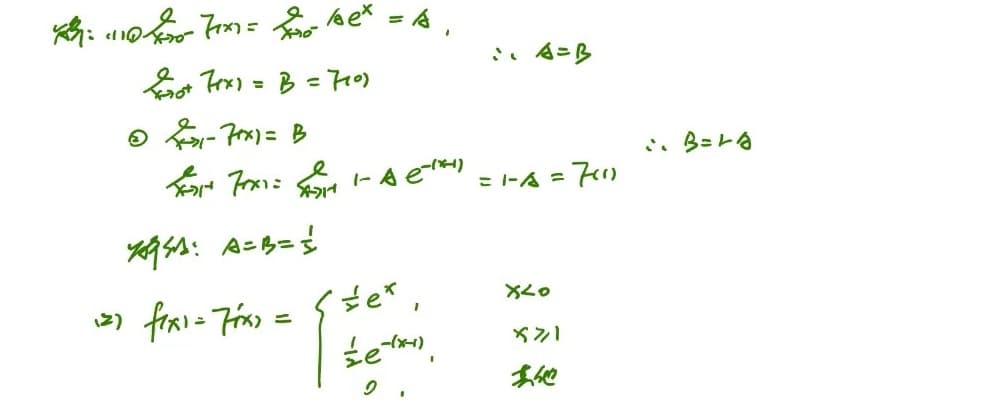 解: (1) ① lim x→0⁻ F(x) = lim x→0⁻ Ae^x = A, ∴ A=B
lim x→0⁺ F(x) = B = F(0)
② lim x→1⁻ F(x) = B
lim x→1⁺ F(x) = lim x→1⁺ 1-Ae^{-(x-1)} = 1-A = F(1) ∴ B=1-A
解得: A=B=1/2
(2) f(x) = F'(x) = { 1/2 e^x, x<0
1/2 e^{-(x-1)}, x≥1
0, 其他